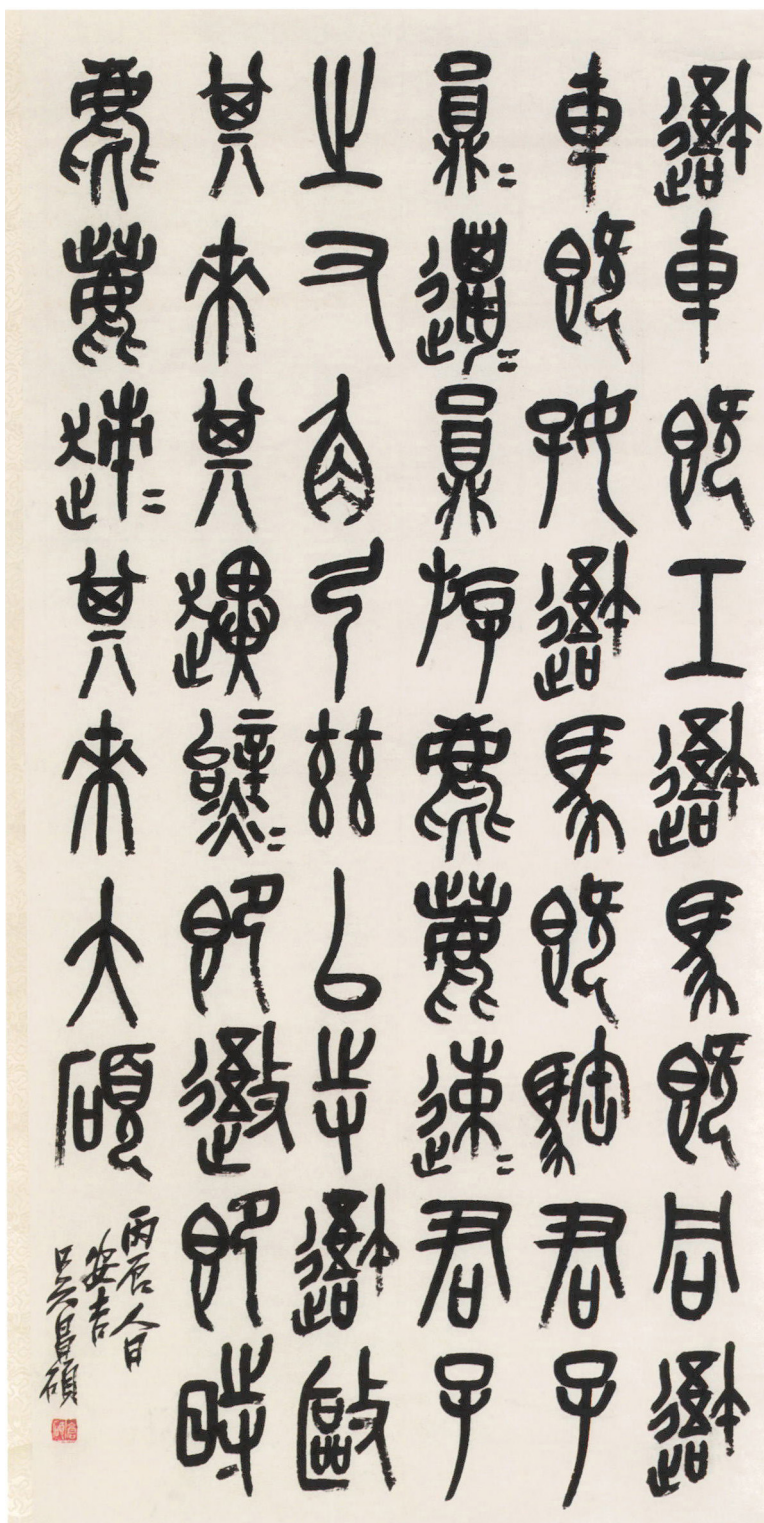 吾車既工吾馬既同吾
車既好吾馬既䮲君子
員〻邋〻員斿麀鹿速〻君子
之求角弓茲以寺吾敺
其來其趩㷠〻即䢋即時
麀鹿趚〻其來大碩
丙辰人日
安吉
吳昌碩